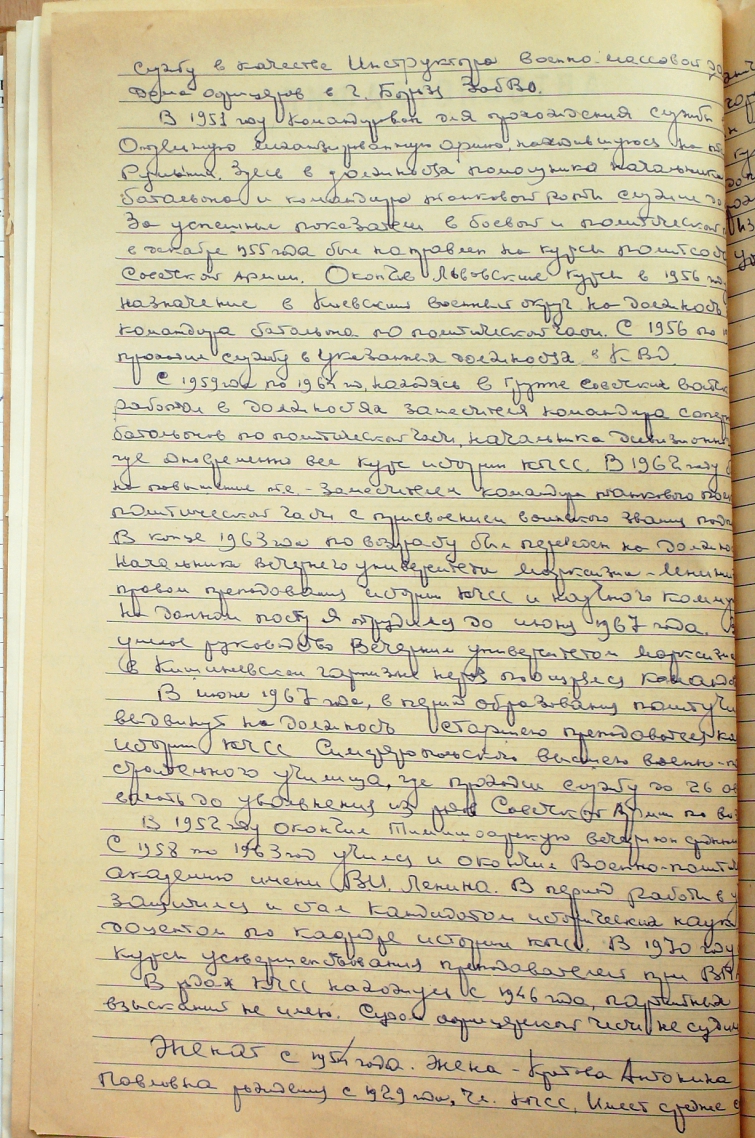 службу в качестве Инструктора военно-массовой
Дома офицеров в г. Борзя ЗабВО.
В 1951 году командирован для прохождения службы
Отдельную механизированную армию, находившуюся на
Румынии. Здесь в должностях помощника начальника
батальона и командира танковой роты служил до
За успешные показатели в боевой и политической
в декабре 1955 года был направлен на курсы политсос
Советской Армии. Окончив Львовские курсы в 1956
назначение в Киевский военный округ на должность
командира батальона по политической части. С 1956 по
проходил службу в указанных должностях в КВО.
С 1959 года по 1962 г., находясь в Группе советских войск
работал в должностях заместителя командира
батальонов по политической части, начальника дивизионн
где одновременно вел курс истории КПСС. В 1962 году
на повышение т.е. - заместителем командира танкового пол
политической части с присвоением воинского звания подп
В конце 1963 года по возрасту был переведен на должно
Начальника вечернего университета Марксизма-Ленини
правом преподавания истории КПСС и научного комму
На данном посту я трудился до июня 1967 года.
умелое руководство Вечерним университетом марксизм
в Кишиневском гарнизоне поощрялся командо
В июне 1967 года, в период образования политучи
выдвинут на должность старшего преподавателя ка
истории КПСС Симферопольского высшего военно-п
строительного училища, где проходил службу до 26
вплоть до увольнения из рядов Советской Армии по во
В 1952 году окончил Тимишоарскую вечернюю средню
С 1958 по 1963 год учился и окончил Военно-полити
академию имени В.И. Ленина. В период работы в у
защитился и стал кандидатом исторических наук
доцентом по кафедре истории КПСС. В 1970 году
курсы усовершенствования преподавателей при ВПА
В рядах КПСС нахожусь с 1946 года, партийных
взысканий не имею. Судом офицерской чести не судим
Женат с 1951 года. Жена - Антонина
Павловна рождения с 1929 года, чл. КПСС. Имеет средне